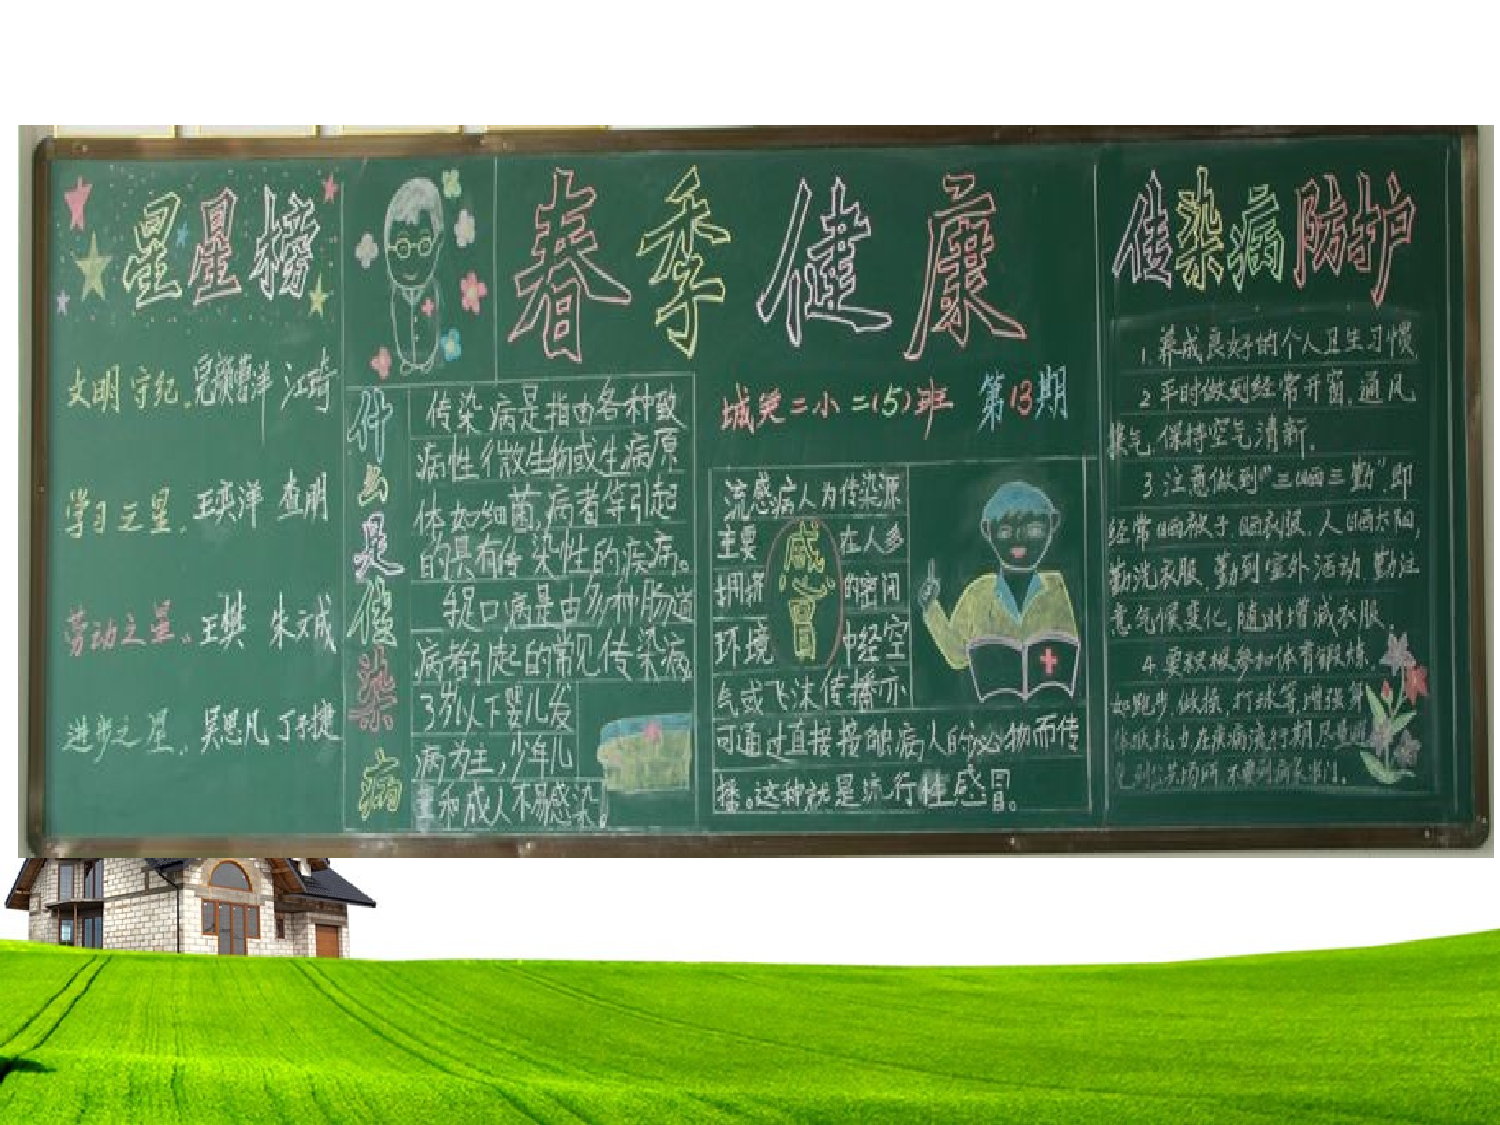 星星榜
文明守纪。 江琦
学习之星。王奕洋 查明
劳动之星。王樊 朱文成
进步之星。吴思凡 丁子捷
春季健康
城关二小二(5)班 第13期
什么是传染病
传染病是指由各种致
病性微生物或生病原
体如细菌,病者等引起
的具有传染性的疾病。
病者引起的常见传染病
3岁以下婴儿发
病为主,少年儿
童和成人不易感染。
感冒
流感病人为传染源
主要 在人多
拥挤 的密闭
环境 中经空
气或飞沫传播亦
可通过直接接触病人的泌物而传
播。这种就是流行性感冒。
传染病防护
1.养成良好的个人卫生习惯
2平时做到经常开窗,通风
换气,保持空气清新。
3注意做到“三晒三勤”,即
经常晒被子 晒衣服,人晒太阳,
勤洗衣服,勤到室外活动,勤注
意气候变化,随时增减衣服。
4要积极参加体育锻炼,
如跑步,做操,打球等,增强身